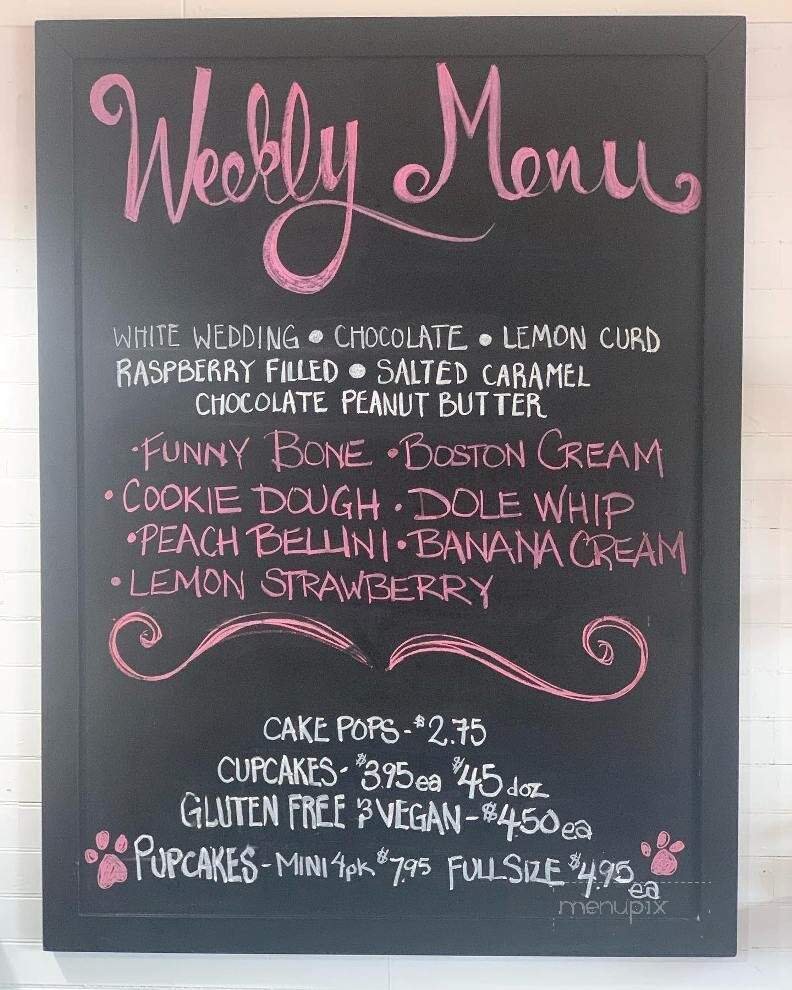 Weekly Menu
WHITE WEDDING • CHOCOLATE • LEMON CURD
RASPBERRY FILLED • SALTED CARAMEL
CHOCOLATE PEANUT BUTTER
•FUNNY BONE •BOSTON CREAM
•COOKIE DOUGH • DOLE WHIP
•PEACH BELLINI •BANANA CREAM
•LEMON STRAWBERRY
CAKE POPS - $2.75
CUPCAKES - $3.95 ea $45 doz
GLUTEN FREE & VEGAN - $4.50 ea
PUPCAKES - MINI 4pk $7.95 FULL SIZE $4.95 ea
menupix